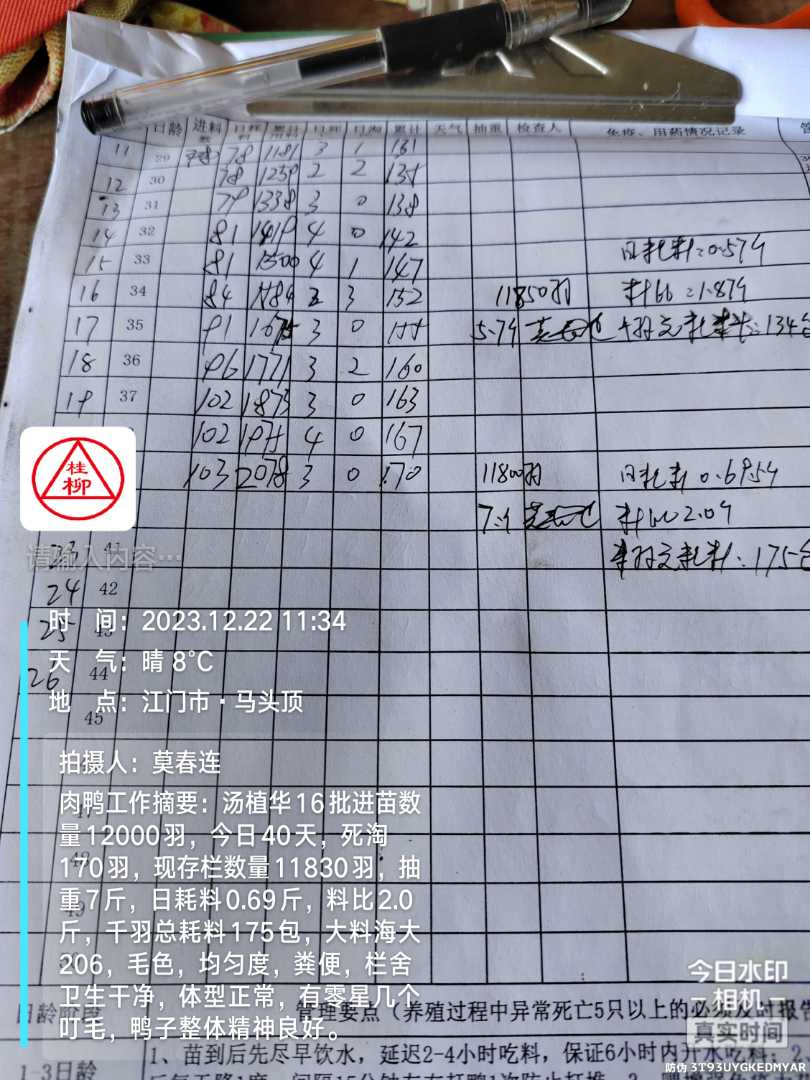 日龄 进料 日耗料 累计 日死 日淘 累计 天气 抽重 检查人 免疫、用药情况记录
11 29 78 1181 3 1 131
12 30 78 1259 2 2 135
13 31 79 1338 3 0 138
14 32 81 1419 4 0 142
日耗料:0.57斤
15 33 81 1500 4 1 147
16 34 84 1584 2 3 152 11850羽 料比:1.87斤
17 35 91 1675 3 0 155 5.7斤 134包
18 36 96 1771 3 2 160
19 37 102 1873 3 0 163
102 1975 4 0 167
103 2078 3 0 170 11800羽 日耗料 0.695斤
料比2.0斤
桂柳
请输入内容…
23 41
耗料:175包
24 42
25 43
26 44
45
时 间:2023.12.22 11:34
天 气:晴 8℃
地 点:江门市·马头顶
拍摄人:莫春连
肉鸭工作摘要:汤植华16批进苗数
量12000羽,今日40天,死淘
170羽,现存栏数量11830羽,抽
重7斤,日耗料0.69斤,料比2.0
斤,千羽总耗料175包,大料海大
206,毛色,均匀度,粪便,栏舍
卫生干净,体型正常,有零星几个
叮毛,鸭子整体精神良好。
今日水印
相机
真实时间
日龄阶段 管理要点(养殖过程中异常死亡5只以上的必须及时报告
1-3日龄 1、苗到后先尽早饮水,延迟2-4小时吃料,保证6小时内开水吃料;2
防伪 3T93UYGKEDMYAR